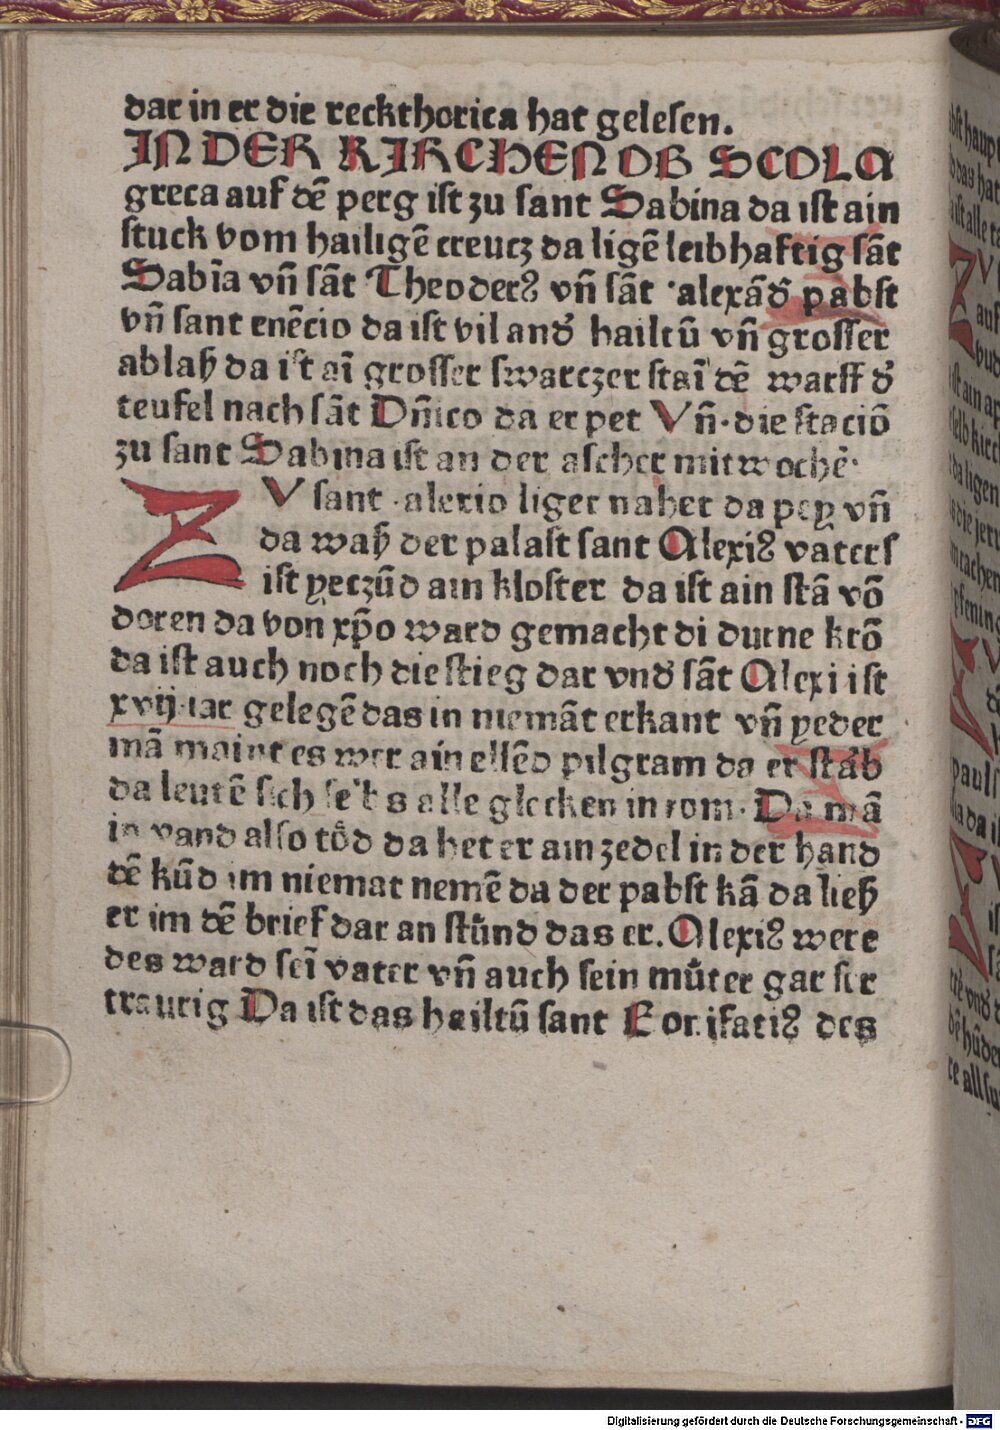 dar in er die reckthorica hat gelesen.
IN DER KIRCHEN OB SCOLA
greca auf dē perg ist zu sant Sabina da ist ain
stuck vom hailigē creucz da ligē leibhaftig sāt
Sabīa vn̄ sāt Theoders vn̄ sāt alexād pabst
vn̄ sant enēcio da ist vil and hailtū vn̄ grosser
ablaß da ist aī grosser swarczer staī dē warff d
teufel nach sāt Dn̄ico da er pet Vn̄ die staciō
zu sant Sabina ist an der ascher mitwochē
ZV sant alexio liger naher da pey vn̄
da waß der palast sant Alexis vaters
ist yeczūd ain kloster da ist ain stā vō
doren da von xp̄o ward gemacht di durne krō
da ist auch noch die stieg dar vnd sāt Alexi ist
xvij iar gelegē das in niemāt erkant vn̄ yeder
mā maint es wer ain ellēd pilgram da er stāb
da leutē sich selbs alle glocken in rom. Da mā
in vand also tod da het er ain zedel in der hand
dē kūd im niemat nemē da der pabst kā da ließ
er im dē brief dar an stůnd das er. Alexis were
des ward seī vater vn̄ auch sein můter gar ser
traurig Da ist das hailtū sant Bonifatis des
bst haup
das hat
ist alle
ZV
auf
ist ain
da ligen
die
pauli
da
vnd
re allsu
Digitalisierung gefördert durch die Deutsche Forschungsgemeinschaft - DFG